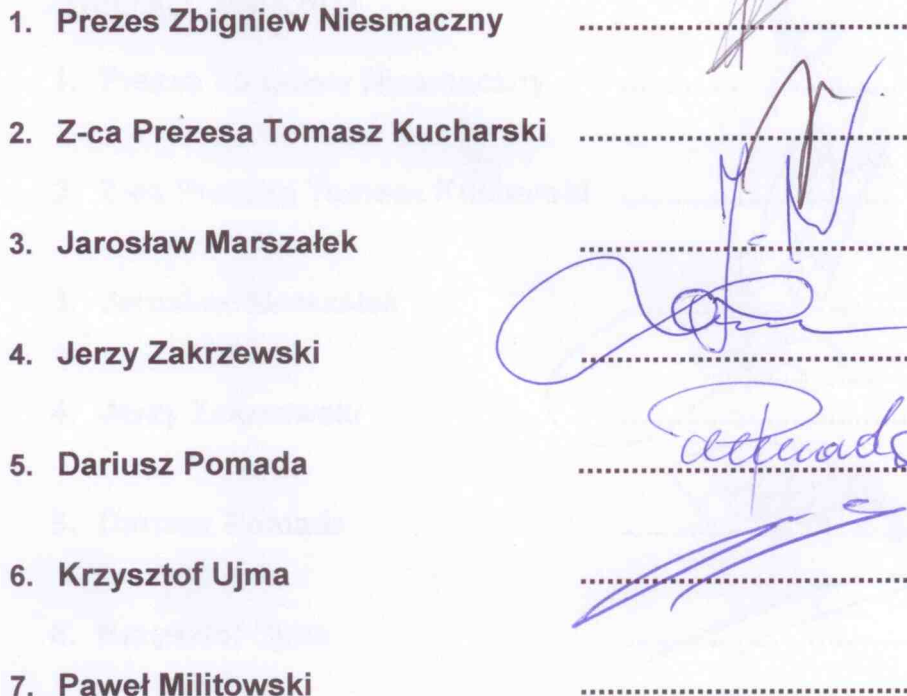 1. Prezes Zbigniew Niesmaczny ........................
2. Z-ca Prezesa Tomasz Kucharski ........................
3. Jarosław Marszałek ........................
4. Jerzy Zakrzewski ........................
5. Dariusz Pomada ........................
6. Krzysztof Ujma ........................
7. Paweł Militowski ........................